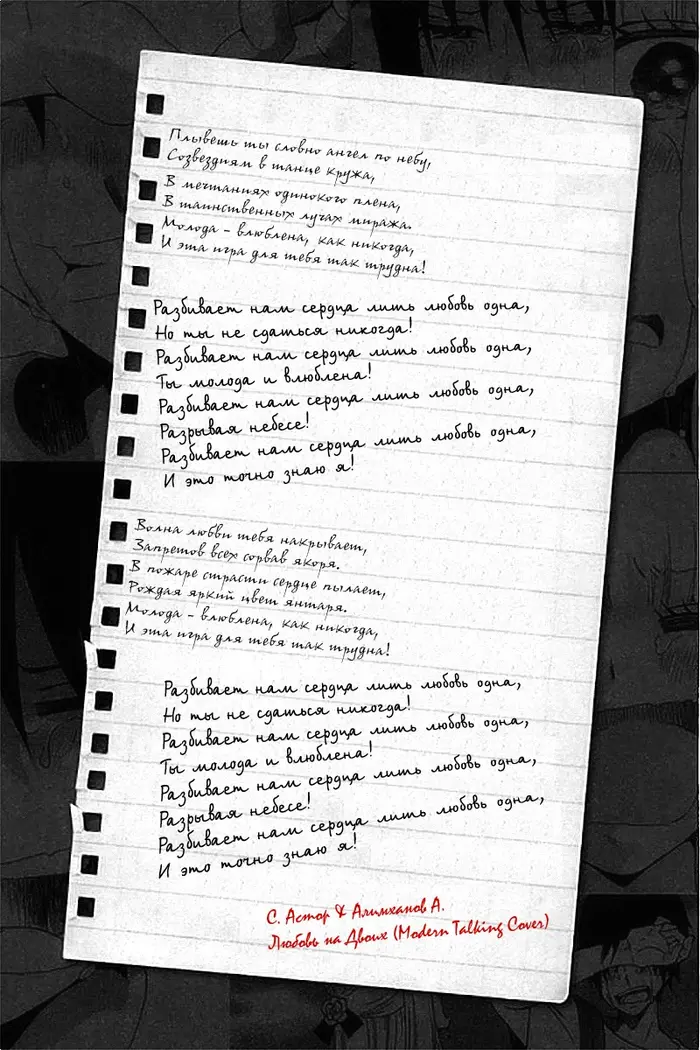 Плывешь ты словно ангел по небу,
Созвездиям в танце кружа,
В мечтаниях одинокого плена,
В таинственных лучах миража.
Молода - влюблена, как никогда,
И эта игра для тебя так трудна!
Разбивает нам сердца лить любовь одна,
Но ты не сдаться никогда!
Разбивает нам сердца лить любовь одна,
Ты молода и влюблена!
Разбивает нам сердца лить любовь одна,
Разрывая небесе!
Разбивает нам сердца лить любовь одна,
И это точно знаю я!
Волна любви тебя накрывает,
Запретов всех сорвав якоря.
В пожаре страсти сердце пылает,
Рождая яркий цвет янтаря.
Молода - влюблена, как никогда,
И эта игра для тебя так трудна!
Разбивает нам сердца лить любовь одна,
Но ты не сдаться никогда!
Разбивает нам сердца лить любовь одна,
Ты молода и влюблена!
Разбивает нам сердца лить любовь одна,
Разрывая небесе!
Разбивает нам сердца лить любовь одна,
И это точно знаю я!
С. Астор & Алимханов А.
Любовь на Двоих (Modern Talking Cover)